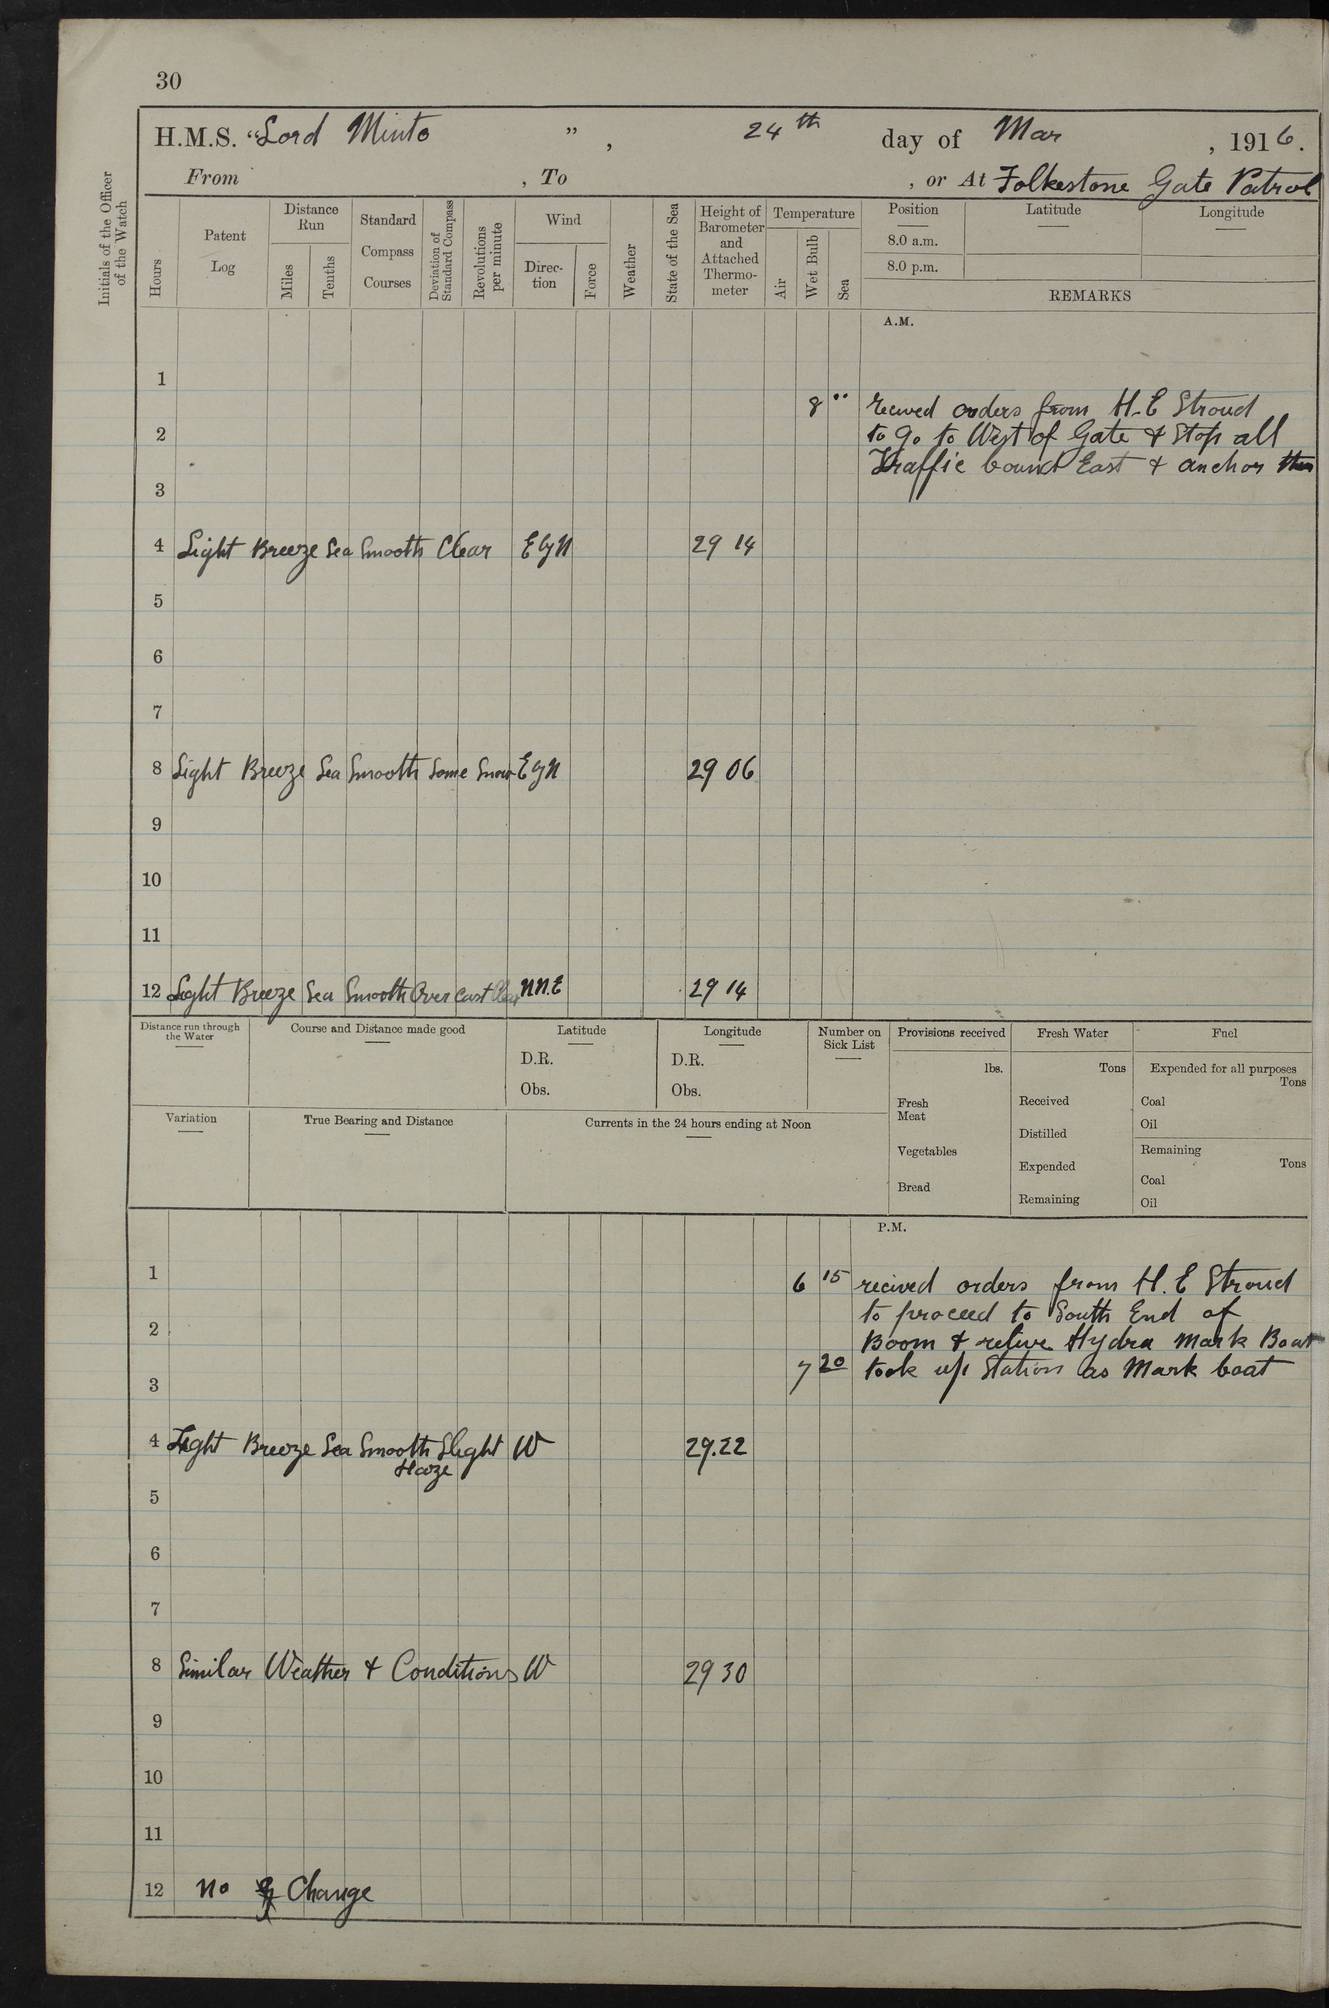 30
H.M.S. "Lord Minto", 24th day of Mar, 1916.
From , To , or At Folkestone Gate Patrol
Initials of the Officer of the Watch
Hours
Patent Log
Distance Run
Miles
Tenths
Standard Compass Courses
Deviation of Standard Compass
Revolutions per minute
Wind
Direc-tion
Force
Weather
State of the Sea
Height of Barometer and Attached Thermo-meter
Temperature
Air
Wet Bulb
Sea
Position
Latitude
Longitude
8.0 a.m.
8.0 p.m.
REMARKS
A.M.
1
8 " recived orders from H.E Stroud
2 to go to West of Gate & Stop all
Traffic bound East & anchor
3
4 Light Breeze Sea Smooth Clear E by N 29 14
5
6
7
8 Light Breeze Sea Smooth Some Snow E by N 29 06
9
10
11
12 Light Breeze Sea Smooth Over Cast Clear N.N.E 29 14
Distance run through the Water
Course and Distance made good
Latitude
D.R.
Obs.
Longitude
D.R.
Obs.
Number on Sick List
Provisions received
lbs.
Fresh Meat
Vegetables
Bread
Fresh Water
Tons
Received
Distilled
Expended
Remaining
Fuel
Expended for all purposes
Tons
Coal
Oil
Remaining
Tons
Coal
Oil
Variation
True Bearing and Distance
Currents in the 24 hours ending at Noon
P.M.
1 6 15 recived orders from H.E Stroud
to proceed to South End of
2 Boom & relive Hydra Mark Boat
7 20 took up Station as Mark boat
3
4 Light Breeze Sea Smooth Slight W 29.22
Haze
5
6
7
8 Similar Weather & Conditions W 29 30
9
10
11
12 No Change